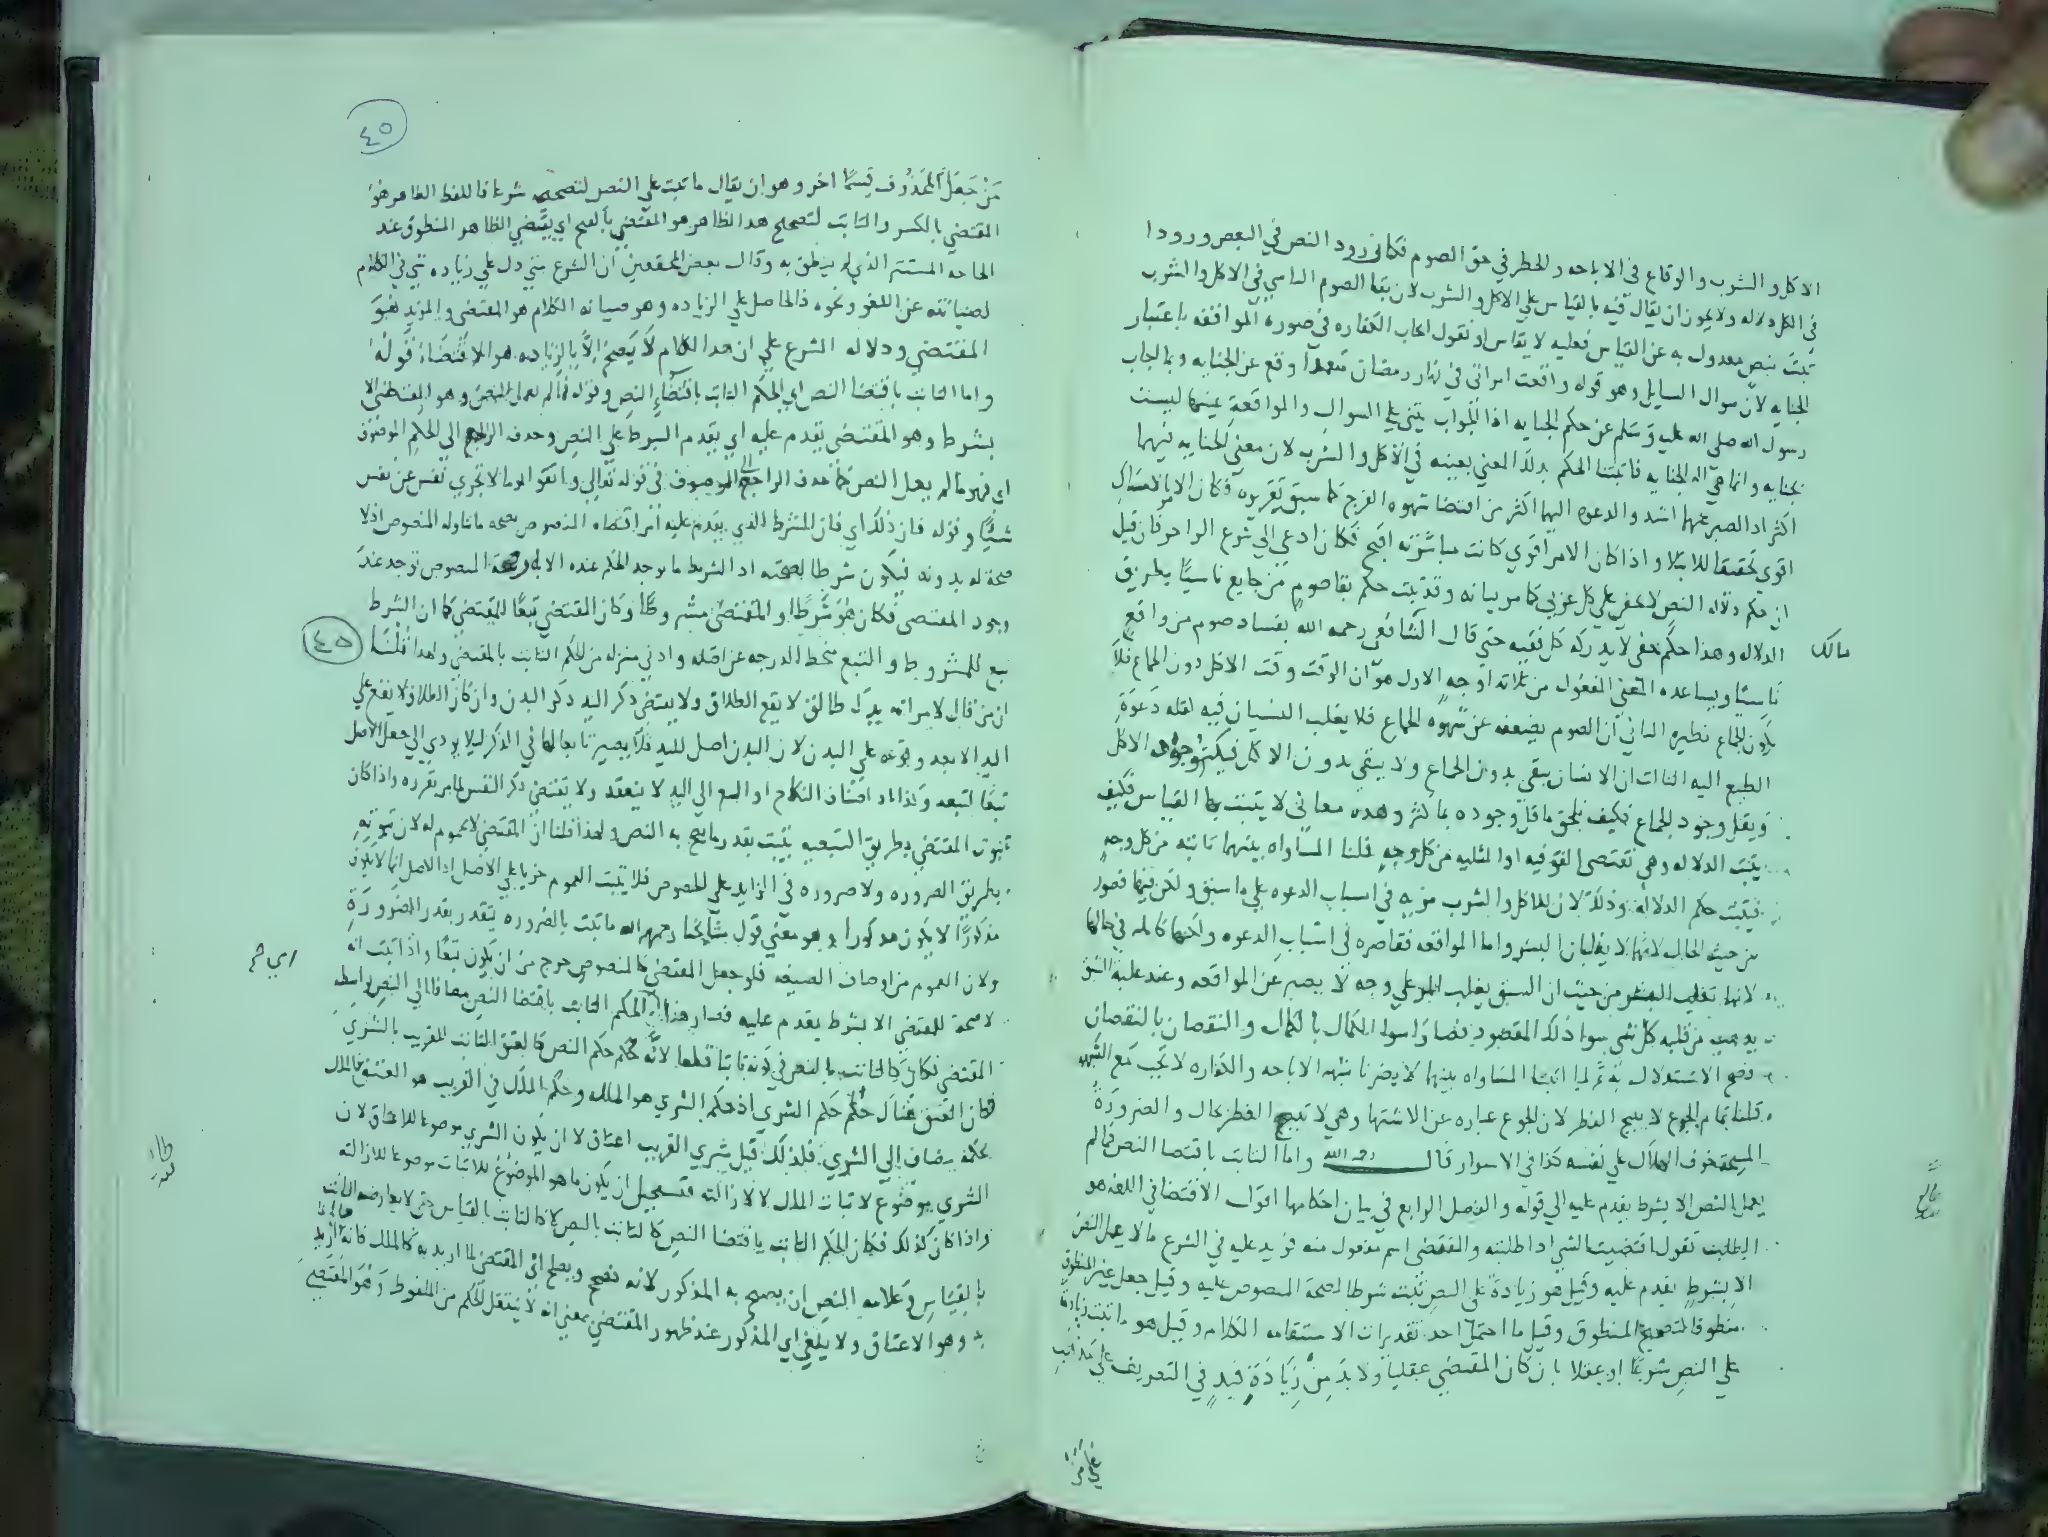 الاكل والشرب والوقاع في الاباحه والحظر في حق الصوم فكان ورود النص في البعض ورودا
في الكل دلاله ولا يجوز ان يقال فيه بالقياس علي الاكل والشرب لان بقا الصوم الناسي في الاكل والشرب
ثبت بنص معدول به عن القياس فعليه لا يقاس او نقول ايجاب الكفاره في صورة المواقعه باعتبار
الجنايه لان سوال السايل وهو قوله واقعت امراتي في نهار رمضان متعمدا وقع عن الجنايه وبالجاب
رسول الله صلي الله عليه وسلم عن حكم الجنايه اذ الجواب يبتني علي السوال والمواقعة عينها ليست
بجنايه وانما هي آلة الجنايه فاثبتنا الحكم بذلك المعني بعينه في الاكل والشرب لان معني الجنايه فيهما
اكثر اذ الصبر عنهما اشد والدعوه اليهما اكثر من اقتضا شهوه الفرج كما سبق تقريره فكان الامر بالامساك
اقوي تحقيقا للابتلا واذا كان الامر اقوي كانت مباشرته اقبح فكان ادعي الي شرع الزاجر فان قيل
ان حكم دلاله النص لا يخفي علي كل عربي كما مر بيانه وقد ثبت حكم بقا صوم من جامع ناسيا بطريق
الدلاله وهذا حكم خفي لا يدركه كل فقيه حتي قال الشافعي رحمه الله بفساد صوم من واقع
مالك
ناسيا ويساعده المعني المعقول من ثلاثه اوجه الاول هو ان الوقت وقت الاكل دون الجماع فلا
يكون الجماع نظيره الثاني ان الصوم يضعفه عن شهوه الجماع فلا يغلب النسيان فيه لقله دعوة
الطبع اليه الثالث ان الانسان يبقي بدون الجماع ولا يبقي بدون الاكل فيكثر وجود الاكل
ويقل وجود الجماع فكيف يلحق ما قل وجوده بما كثر وهذه معاني لا يثبت بها القياس فكيف
يثبت الدلاله وهي تقتضي القوه فيه او المثليه من كل وجه قلنا المساواه بينهما ثابته من كل وجه
فيثبت حكم الدلاله وذلك لان للاكل والشرب مزيه في اسباب الدعوه علي ما سبق ولكن فيهما قصور
من حيث الحال لانهما لا يغلبان البشر واما المواقعه فقاصره في اسباب الدعوه ولكنها كامله في حالها
لانها تغلب البشر من حيث ان الشبق يغلب المرء علي وجه لا يصبر عن المواقعه وعند غلبة الشبق
يذهب من قلبه كل شي سوا ذلك المقصود فصارا سوا الكمال بالكمال والنقصان بالنقصان
فصح الاستدلال به ثم لما اثبتنا المساواه بينهما لا يضرنا شبه الاباحه والكفاره لا تجب مع الشبهه
قلنا تمام الجوع لا يبيح الفطر لان الجوع عباره عن الاشتها وهي لا تبيح الفطر بحال والضرورة
المبيحة خوف الهلاك علي نفسه كذا في الاسرار قال رحمه الله واما الثابت باقتضا النص فما لم
يعمل النص الا بشرط يقدم عليه الي قوله والفصل الرابع في بيان احكامها اقول الاقتضا في اللغه هو
الطلب تقول اقتضيت الشي اذا طلبته والمقتضي اسم مفعول منه فزيد عليه في الشرع ما لا يعمل النص
الا بشرط يقدم عليه وقيل هو زيادة علي النص ثبت شرطا لصحة المنصوص عليه وقيل جعل غير المنطوق
منطوقا لتصحيح المنطوق وقيل ما احتمل احد تقديرات الاستقامه الكلام وقيل هو ما ثبت زيادة
علي النص شرعا او عقلا بان كان المقتضي عقليا ولا بد من زيادة قيد في التعريف علي مذاهب
٤٥
من جعل المحذوف قسما اخر وهو ان يقال ما ثبت علي النص لتصحيحه شرعا فاللفظ الظاهر هو
المقتضي بالكسر والثابت لتصحيح هذا الظاهر هو المقتضي بالفتح اي يقتضي الظاهر المنطوق عند
الحاجه المستتر الذي لم ينطق به وقال بعض المحققين ان الشرع متي دل علي زياده شي في الكلام
لصيانته عن اللغو ونحوه فالحاصل علي الزياده وهو صيانه الكلام هو المقتضي والمزيد هو
المقتضي ودلاله الشرع علي ان هذا الكلام لا يصح الا بالزياده هو الاقتضاء قوله
واما الثابت باقتضا النص اي الحكم الثابت باقتضاء النص وقوله فما لم يعمل النص وهو المقتضي الا
بشرط وهو المقتضي يقدم عليه اي يقدم الشرط علي النص وحذف الراجع الي الحكم الموصوف
اي فهو ما لم يعمل النص كما حذف الراجع الي الموصوف في قوله تعالي واتقوا يوما لا تجزي نفس عن نفس
شيئا وقوله فان ذلك اي فان الشرط الذي يقدم عليه امر اقتضاه المنصوص بصحه ما تناوله المنصوص اذ لا
صحة له بدونه فيكون شرطا لصحته اذ الشرط ما يوجد الحكم عنده لا به وصحة المنصوص توجد عند
وجود المقتضي فكان هو شرطا والمقتضي مشروطا وكان المقتضي تبعا للمقتضي كما ان الشرط
تبع للمشروط والتبع منحط الدرجه عن اصله وادني منزله من الحكم الثابت بالمقتضي ولهذا قلنا
٤٥
ان من قال لامراته يدك طالق لا يقع الطلاق ولا يقتضي ذكر اليد ذكر البدن وان كان الطلاق لا يقع علي
اليد الا بعد وقوعه علي البدن لان البدن اصل لليد فلا يصير تابعا لها في الذكر ليلا يودي الي جعل الاصل
تبعا لتبعه وكذا اذا اضاف النكاح او البيع الي اليد لا ينعقد ولا يقتضي ذكر النفس لما مر تقرره واذا كان
ثبوت المقتضي بطريق التبعيه يثبت بقدر ما يصح به النص ولهذا قلنا ان المقتضي لا عموم له لان ثبوته
بطريق الضروره ولا ضروره في الزايد علي الخصوص فلا يثبت العموم جريا علي الاصل اذ الاصل ان ما لا يكون
مذكورا لا يكون مذكورا وهو معني قول مشايخنا رحمهم الله ما ثبت بالضروره يتقدر بقدر الضرورة
ولان العموم من اوصاف الصيغه فلو جعل المقتضي كالمنصوص خرج من ان يكون تبعا واذا ثبت انه
لا صحة للمقتضي الا بشرط يقدم عليه فصار هذا اي الحكم الثابت باقتضا النص مضافا الي النص بواسطه
المقتضي فكان كالثابت بالنص في كونه ثابتا قطعا لانه حكم حكم النص كالعتق الثابت للقريب بالشري
فكان العتق هناك حكم حكم الشري اذ حكم الشري هو الملك وحكم الملك في القريب هو العتق فالملك
بحكمه يضاف الي الشري فلذلك قيل شري القريب اعتاق لا ان يكون الشري موضوعا للاعتاق لان
الشري موضوع لاثبات الملك لا لازالته فيستحيل ان يكون ما هو الموضوع للاثبات موضوعا للازالته
واذا كان كذلك فكان الحكم الثابت باقتضا النص كالثابت بالنص لا كالثابت بالقياس حتي لا يعارضه الثابت
بالقياس وعلامه النص ان يصح به المذكور لانه نصح ويصلح اي المقتضي لما اريد به كالملك فانه اريد
به وهو الاعتاق ولا يلغي اي المذكور عند ظهور المقتضي بمعني انه لا ينتقل الحكم من الملفوظ وهو المقتضي